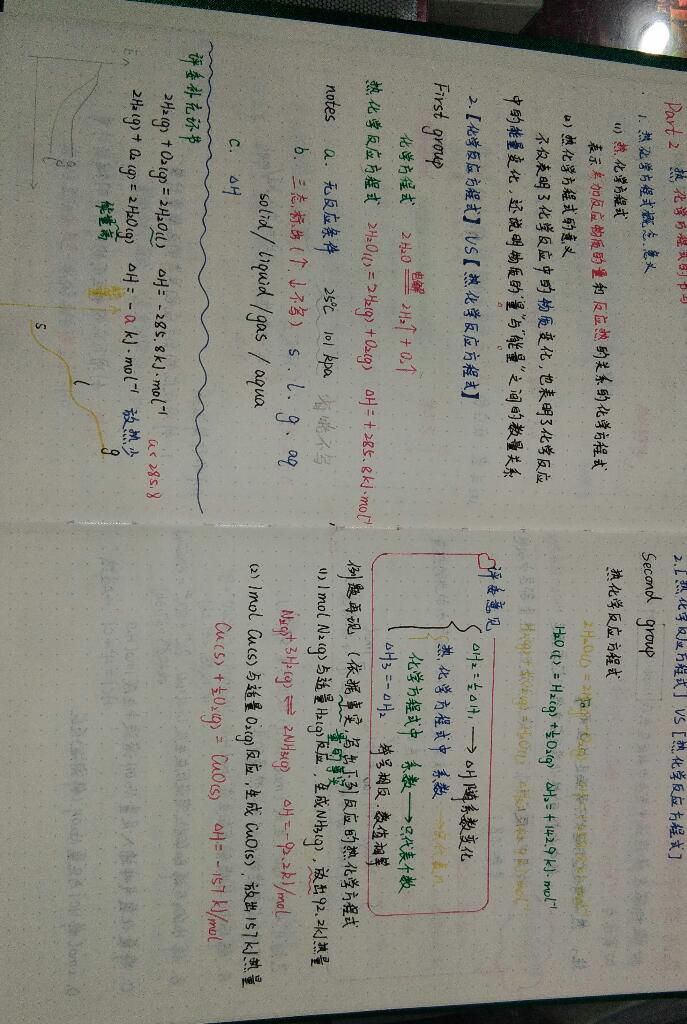 Part 2 热化学方程式的书写
1. 热化学方程式概念、意义
(1) 热化学方程式
表示参加反应物质的量和反应热的关系的化学方程式
(2) 热化学方程式的意义
不仅表明了化学反应中的物质变化,也表明了化学反应
中的能量变化,还说明物质的“量”与“能量”之间的数量关系
2.【化学反应方程式】VS【热化学反应方程式】
First group
化学方程式 2H₂O 电解 2H₂↑ + O₂↑
热化学反应方程式 2H₂O(l) = 2H₂(g) + O₂(g) ΔH = +285.8kJ·mol⁻¹
notes a. 无反应条件 25℃ 101kpa
b. 三态标出(↑、↓不写) s、l、g、aq
solid/liquid/gas/aqua
c. ΔH
评委补充环节
2H₂(g) + O₂(g) = 2H₂O(l) ΔH = -285.8kJ·mol⁻¹ a<285.8
2H₂(g) + O₂(g) = 2H₂O(g) ΔH = -a kJ·mol⁻¹ 放热少
能量高
s l g
2.【热化学反应方程式】VS【热化学反应方程式】
Second group
热化学反应方程式
H₂O(l) = H₂(g) + ½O₂(g) ΔH₂ = +142.9kJ·mol⁻¹
评委意见
ΔH₂ = ½ΔH₁ → ΔH随系数变化
热化学方程式中 系数
化学方程式中 系数 → 只代表个数
ΔH₃ = -ΔH₂ 符号相反、数值相等
例题再现(依据事实写出下列反应的热化学方程式
(1) 1mol N₂(g)与适量H₂(g)反应,生成NH₃(g),放出92.2kJ热量
N₂(g) + 3H₂(g) ⇌ 2NH₃(g) ΔH = -92.2kJ/mol
(2) 1mol Cu(s)与适量O₂(g)反应,生成CuO(s),放出157kJ热量
Cu(s) + ½O₂(g) = CuO(s) ΔH = -157kJ/mol